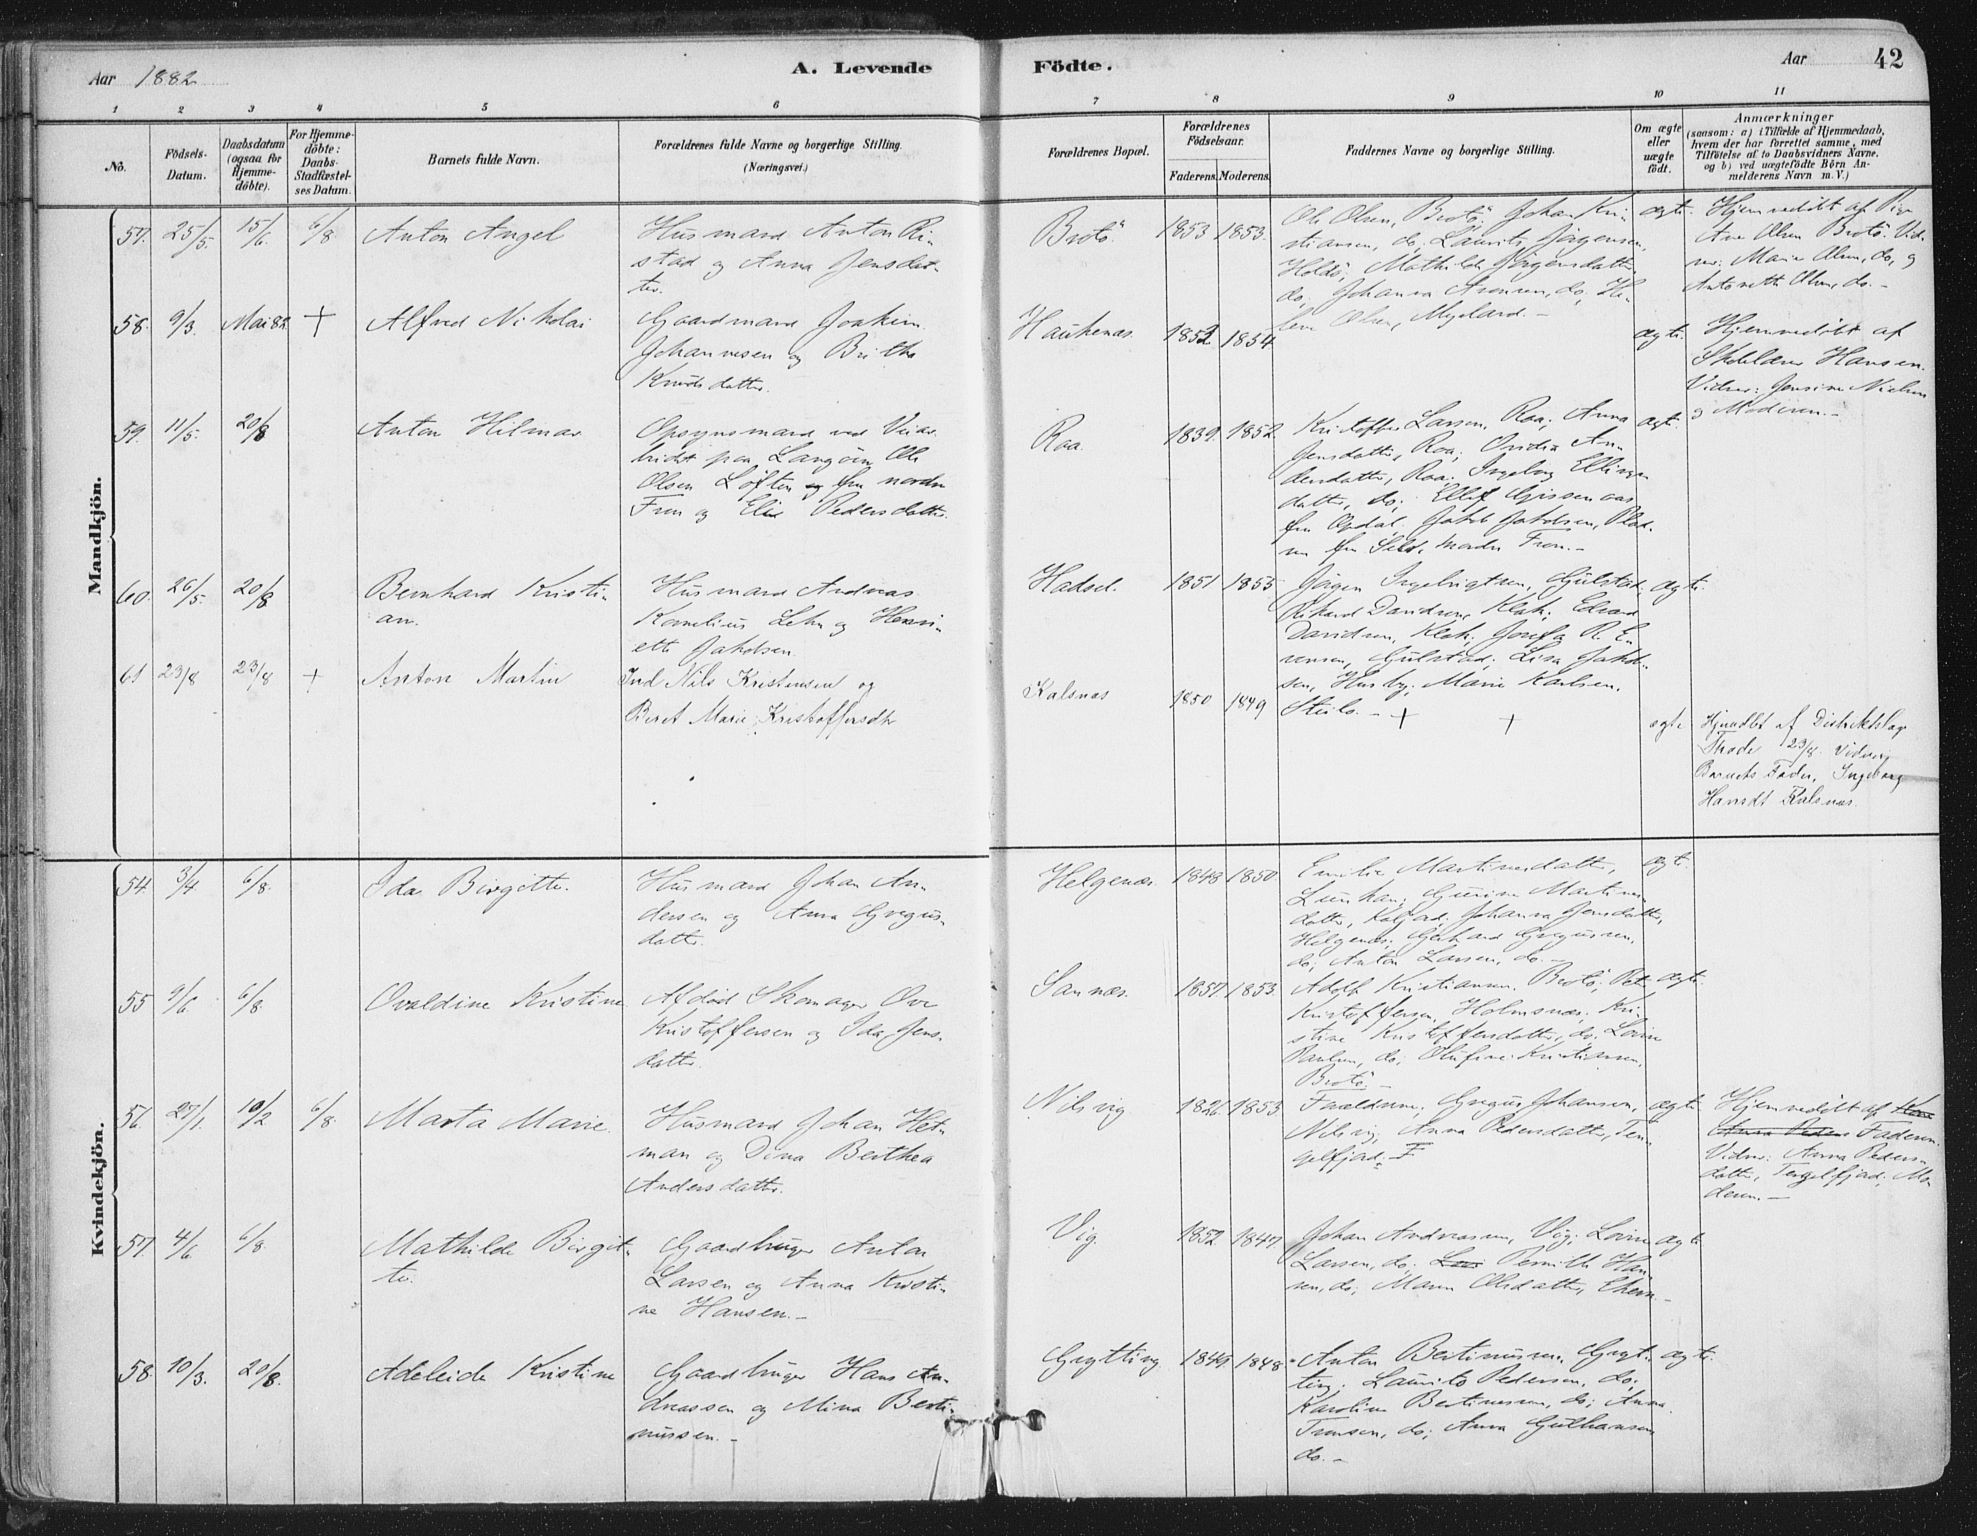 Aar 1882
A. Levende Födte.
Aar
42
1 2 3 4 5 6 7 8 9 10 11
No.
Födsels-Datum.
Daabsdatum (ogsaa for Hjemme-döbte).
For Hjemme-döbte: Daabs-Stadfæstel-ses Datum.
Barnets fulde Navn.
Forældrenes fulde Navne og borgerlige Stilling.
(Næringsvei.)
Forældrenes Bopæl.
Forældrenes Födselsaar.
Faderens. Moderens.
Faddernes Navne og borgerlige Stilling.
Om ægte eller uægte födt.
Anmærkninger
(saasom: a) i Tilfælde af Hjemmedaab,
hvem der har forrettet samme, med
Tilföielse af to Daabsvidners Navne,
og b) ved uægtefödte Börn An-
melderens Navn m. V.)
Mandkjön.
57. 25/5. 15/6. 6/8 Anton Angel
Husmand Anton Ri-
stad og Anna Jensdat-
ter.
Brotö. 1853 1853.
Ole Olsen, Brotö; Johan Kri-
stiansen, do; Laurits Jörgensen,
Holdö; Mathilde Jörgensdatter,
do; Johanna Arensen, do; Ha-
Olsen, Myeland.-
ægte.
Hjemmedöbt af
Ane Olsen Brotö. Vid-
ner: Marie Olsen, do, og
Antonette Olsen, do.-
58. 9/3. Mai 82. + Alfred Nikolai
Gaardmand Joakim
Johannesen og Brithe
Knudsdatter.
Haukenæs. 1852 1854
ægte.
Hjemmedöbt af
Hansen.
Vidner: Jensine Nielsen
og Moderen.-
59. 11/5. 20/8 Anton Hilmar
Opsynsmand ved
paa Langöen Ole
Olsen Löften fra nordre
Fron og Elie Pedersdatter.
Roa. 1839. 1852.
Kristoffer Larsen, Roa; Anna
Jensdatter, Roa; An-
dersdatter, Roa; Ingeborg Ellings-
datter, do; Ellef Gissenaas
fra Opdal. Jakob Jakobsen,
fra nordre Fron.-
ægte.
60. 26/5. 20/8 Bernhard Kristi-
an.
Husmand Andreas
Kornelius Lehn og Henri-
ette Jakobsen.
Hadsel. 1851 1855
Jörgen Ingebrigtsen, Gulstad;
Rikard Davidsen, Kleök; Edvard
Davidsen, Kleök; Josefa R. E-
Gulstad; Lina Jakob-
sen, Husby; Marie Karlsen,
Steilo.- + +
ægte.
61 23/8 23/8 + Anton Martin
Ind Nils Kristensen og
Beret Marie Kristoffersdtr
Kalsnæs 1850 1849
ægte
Hjmdbt af Distriktslæge
Thode 23/8. Vidner
Barnets Fader, Ingeborg
Hansdt Kalsnæs.
Kvindekjön.
54. 3/4 6/8. Ida Birgitte.
Husmand Johan An-
dersen og Anna Gregus-
datter.
Helgenæs. 1848 1850
Emilie Martinesdatter,
Gurine Martines-
datter, Kaljord; Johanna Jensdatter,
Helgenæs; Gerhard Gregussen,
do; Anton Larsen, do.-
ægt.
55 9/6 6/8. Ovaldine Kristine
Afdöd Skomager Ove
Kristoffersen og Ida Jens-
datter.
Sannæs. 1857. 1853.
Adolf Kristiansen, Brotö; Pet.
Kristoffersen, Holmsnæs; Kri-
stine Kristoffersdatter, do; Lovise
Paulsen, do; Olufine Kristiansen,
Brotö.-
ægte.
56. 27/1. 10/2 6/8. Marta Marie.
Husmand Johan Het-
man og Dina Berthea
Andersdatter.
Nilsvig 1826. 1853
Forældrene, Gregus Johansen,
Nilsvig; Anna Pedersdatter, Ten-
gelfjord.-
ægte.
Hjemmedöbt af
Faderen.
Vidner: Anna Peders-
datter, Tengelfjord; Mo-
deren.-
57. 4/6 6/8. Mathilde Birgit-
te.
Gaardbruger Anton
Larsen og Anna Kristi-
ne Hansen.-
Vig. 1852 1847.
Johan Andreassen, Vig; Lovise
Larsen, do; Pernille Han-
sen, do; Maren Olsdatter,
ægte.
58. 10/3. 20/8. Adeleide Kristine
Gaardbruger Hans An-
dreassen og Mina Berti-
nussen.-
Grytting. 1849. 1848.
Anton Bertinussen, Gryt-
ting; Laurits Pedersen, do;
Karoline Bertinussen, do; Anna
Tronsen, do; Anna Gulhansen
do.-
ægte.